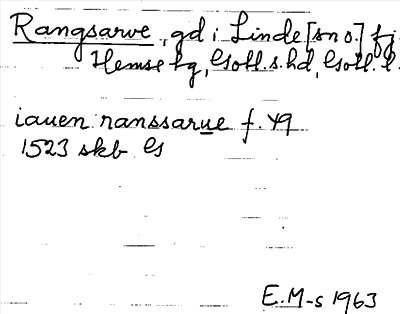 Rangsarve, gd i Linde [sn o.] fj
Hemse tg, Gotl. s. hd, Gotl. l.
iauen ranssarue f. 49
1523 skb Gs
E.M-s 1963